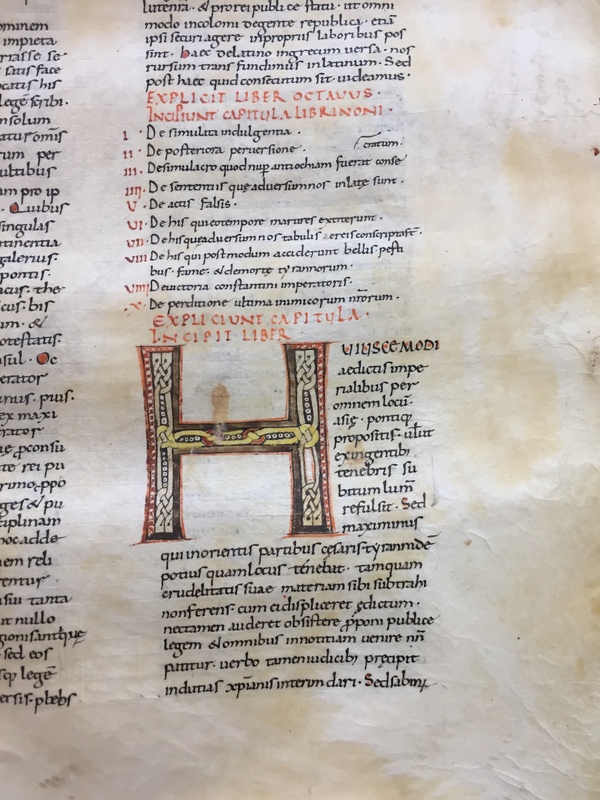 ominem
impieta
rasse se
satis face
ocatis his
lege scribi.
nsolum
atus omīs
rum per
ultibus
am pro ip
Quibus
singulas
ntinentia
galerius.
pontif.
icus. the
icus. bis
um. &
potestatis.
sul. Oc
perator
inus. pius.
ex maxi
rator
ꝓconsu
te rei pu
rimo. ꝓpo
ges & pu
ciplinam
hoc adde
em reli
rentur.
asiu tanta
nt nullo
sed eos
sq; legē
ersis. plebs
luterna. & prorei publice statu. ut omni
modo incolomi degente republica. etiā
ipsi securi agere inpropriis laboribus pos
sint. haec delatino ingrecum versa. nos
rursum trans fundimus inlatinum. Sed
post haec quid consecutum sit. uideamus.
EXPLICIT LIBER OCTAVUS.
INCIPIUNT CAPITULA LIBRI NONI.
I. De simulita indulgentia.
II. De posteriora perversione.
cratum.
III. De simulacro quod nuꝑ antiochiam fuerat conse
IIII. De sententiis que adversum nos inlate sunt.
V. De actis falsis.
VI. De his qui eo tempore martires extiterunt.
VII. De his que adversum nos tabulis ereis conscripta st̄.
VIII. De his qui postmodum acciderunt bellis. pesti
bus. fame. & demorte tyrannorum.
VIIII. De victoria constantini imperatoris.
X. De perditione ultima inimicorum nr̄orum.
EXPLICIUNT CAPITULA.
INCIPIT LIBER
HUIUSCEMODI
aedictis impe
rialibus per
omnem locū.
asię. pontiq;
propositis. uelut
ex ingentib;
tenebris su
bitum lum̄
refulsit. Sed
maximinus
qui inorientis partibus cesaris tyrannidē
potius quam locus tenebat. tamquam
crudelitatis suae materiam sibi subtrahi
non ferens. cum ei displiceret ędictum.
nec tamen auderet obsistere. ꝓponi publice
legem & omnibus innotitiam venire nn̄
patitur. verbo tamen iudicib; pręcipit
indutias xp̄ianis interim dari. Sed sabin;